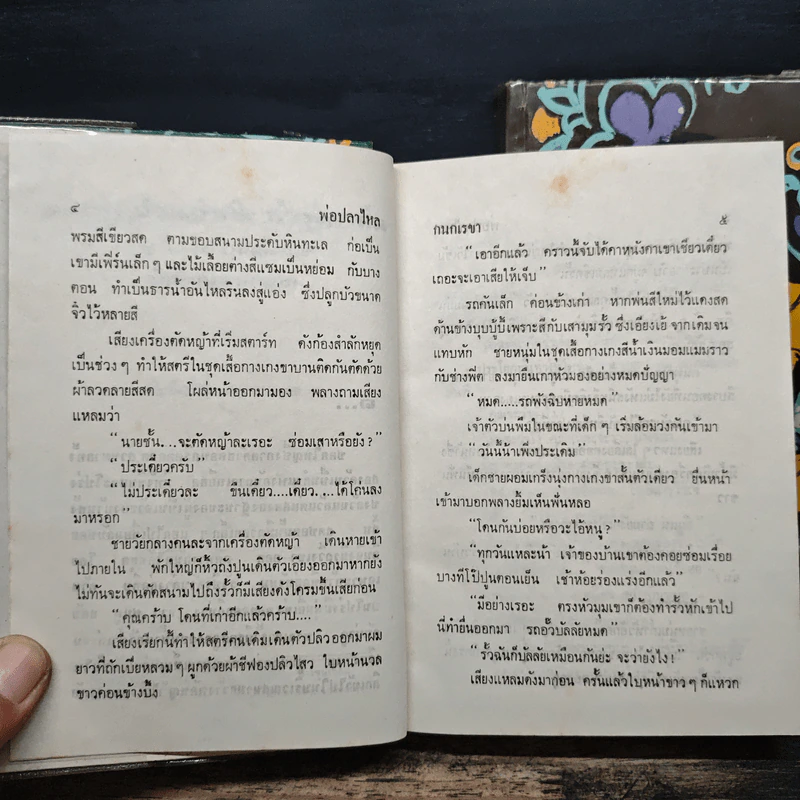 ๔
พ่อปลาไหล
พรมสีเขียวสด ตามขอบสนามประดับหินทะเล ก่อเป็น
เขามีเฟิร์นเล็ก ๆ และไม้เลื้อยต่างสีแซมเป็นหย่อม กับบาง
ตอน ทำเป็นธารน้ำอันไหลรินลงสู่แอ่ง ซึ่งปลูกบัวขนาด
จิ๋วไว้หลายสี
เสียงเครื่องตัดหญ้าที่เริ่มสตาร์ท ดังก้องสำลักหยุด
เป็นช่วง ๆ ทำให้สตรีในชุดเสื้อกางเกงขาบานติดกันตัดด้วย
ผ้าลวดลายสีสด โผล่หน้าออกมามอง พลางถามเสียง
แหลมว่า
“นายชั้น...จะตัดหญ้าละเรอะ ซ่อมเสาหรือยัง?”
“ประเดี๋ยวครับ”
“ไม่ประเดี๋ยวละ ขืนเดี๋ยว....เดี๋ยว....ได้โค่นลง
มาหรอก”
ชายวัยกลางคนละจากเครื่องตัดหญ้า เดินหายเข้า
ไปภายใน พักใหญ่ก็หิ้วถังปูนเดินตัวเอียงออกมาหากยัง
ไม่ทันจะเดินตัดสนามไปถึงรั้วก็มีเสียงดังโครมขึ้นเสียก่อน
“คุณคร้าบ โดนที่เก่าอีกแล้วคร้าบ....”
เสียงเรียกนี้ทำให้สตรีคนเดิมเดินตัวปลิวออกมาผม
ยาวที่ถักเปียหลวม ๆ ผูกด้วยผ้าชีฟองปลิวไสว ใบหน้านวล
ขาวค่อนข้างบึ้ง
กนกเรขา
๕
“เอาอีกแล้ว คราวนี้จับได้คาหนังคาเขาเชียวเดี๋ยว
เถอะจะเอาเสียให้เจ็บ”
รถคันเล็ก ค่อนข้างเก่า หากพ่นสีใหม่ไว้แดงสด
ด้านข้างบุบบู้บี้เพราะสีกับเสามุมรั้ว ซึ่งเอียงเย้ จากเดิมจน
แทบหัก ชายหนุ่มในชุดเสื้อกางเกงสีน้ำเงินมอมแมมราว
กับช่างฟิต ลงมายืนเกาหัวมองอย่างหมดปัญญา
“หมด.....รถพังฉิบหายหมด”
เจ้าตัวบ่นพึมในขณะที่เด็ก ๆ เริ่มล้อมวงกันเข้ามา
“วันนี้น้าเพิ่งประเดิม”
เด็กชายผอมเกร็งนุ่งกางเกงขาสั้นตัวเดียว ยื่นหน้า
เข้ามาบอกพลางยิ้มเห็นฟันหลอ
“โดนกันบ่อยหรือวะไอ้หนู?”
“ทุกวันแหละน้า เจ้าของบ้านเขาต้องคอยซ่อมเรื่อย
บางทีโป๊ปูนตอนเย็น เช้าห้อยร่องแร่งอีกแล้ว”
“มีอย่างเรอะ ตรงหัวมุมเขาก็ต้องทำรั้วหักเข้าไป
นี่ทำยื่นออกมา รถอั๊วบัลลัยหมด”
“รั้วฉันก็บัลลัยเหมือนกันย่ะ จะว่ายังไง!”
เสียงแหลมดังมาก่อน ครั้นแล้วใบหน้าขาว ๆ ก็แหวก